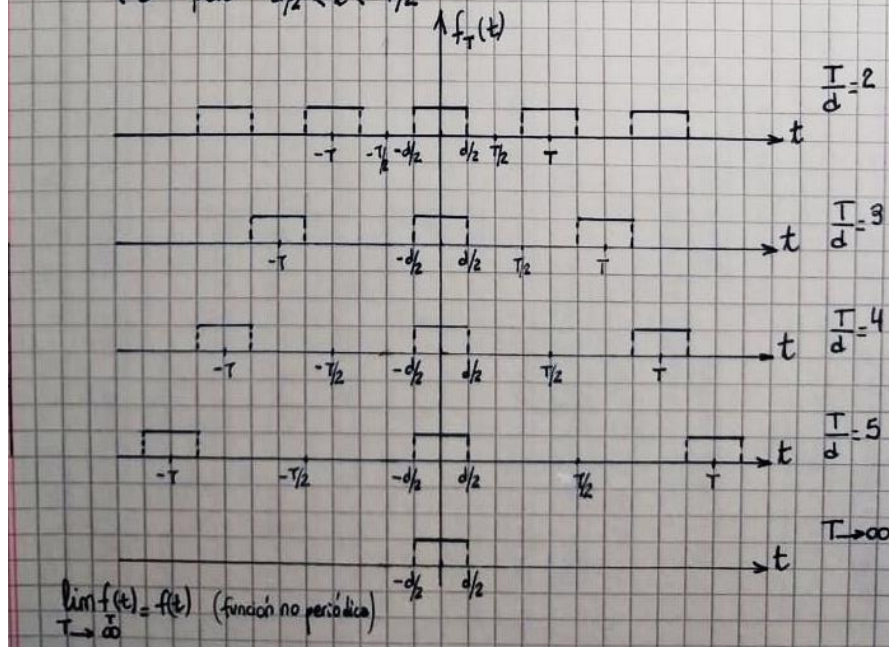 -T/2 < t < T/2
f_T(t)
T/d = 2
-T -T/2 -d/2 d/2 T/2 T t
T/d = 3
-T -d/2 d/2 T/2 T t
T/d = 4
-T -T/2 -d/2 d/2 T/2 T t
T/d = 5
-T -T/2 -d/2 d/2 T/2 T t
T→∞
-d/2 d/2 t
lim f_T(t) = f(t) (función no periódica)
T→∞